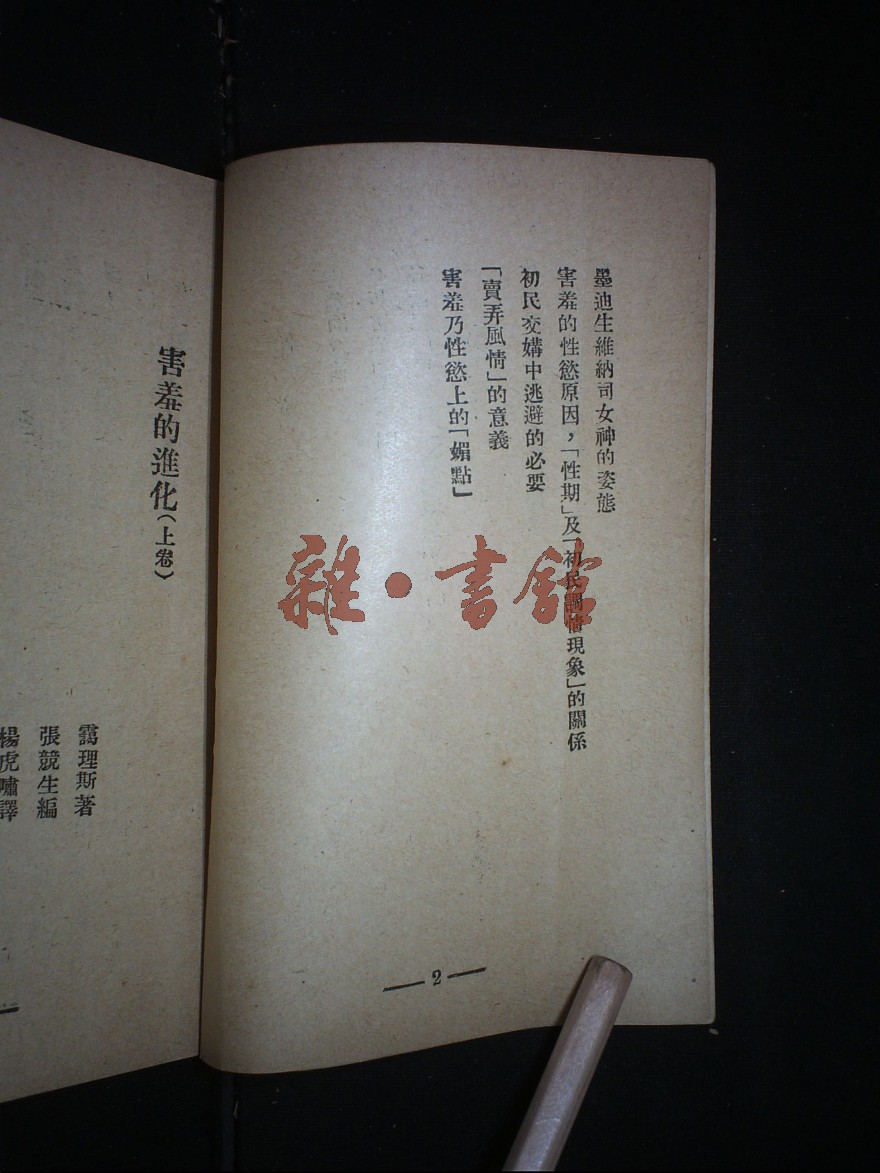 墨迪生維納司女神的姿態
害羞的性慾原因，「性期」及「初民調情現象」的關係
初民交媾中逃避的必要
「賣弄風情」的意義
害羞乃性慾上的「媚點」
— 2 —
害羞的進化（上卷）
靄理斯著
張競生編
楊虎嘯譯
雜·書館